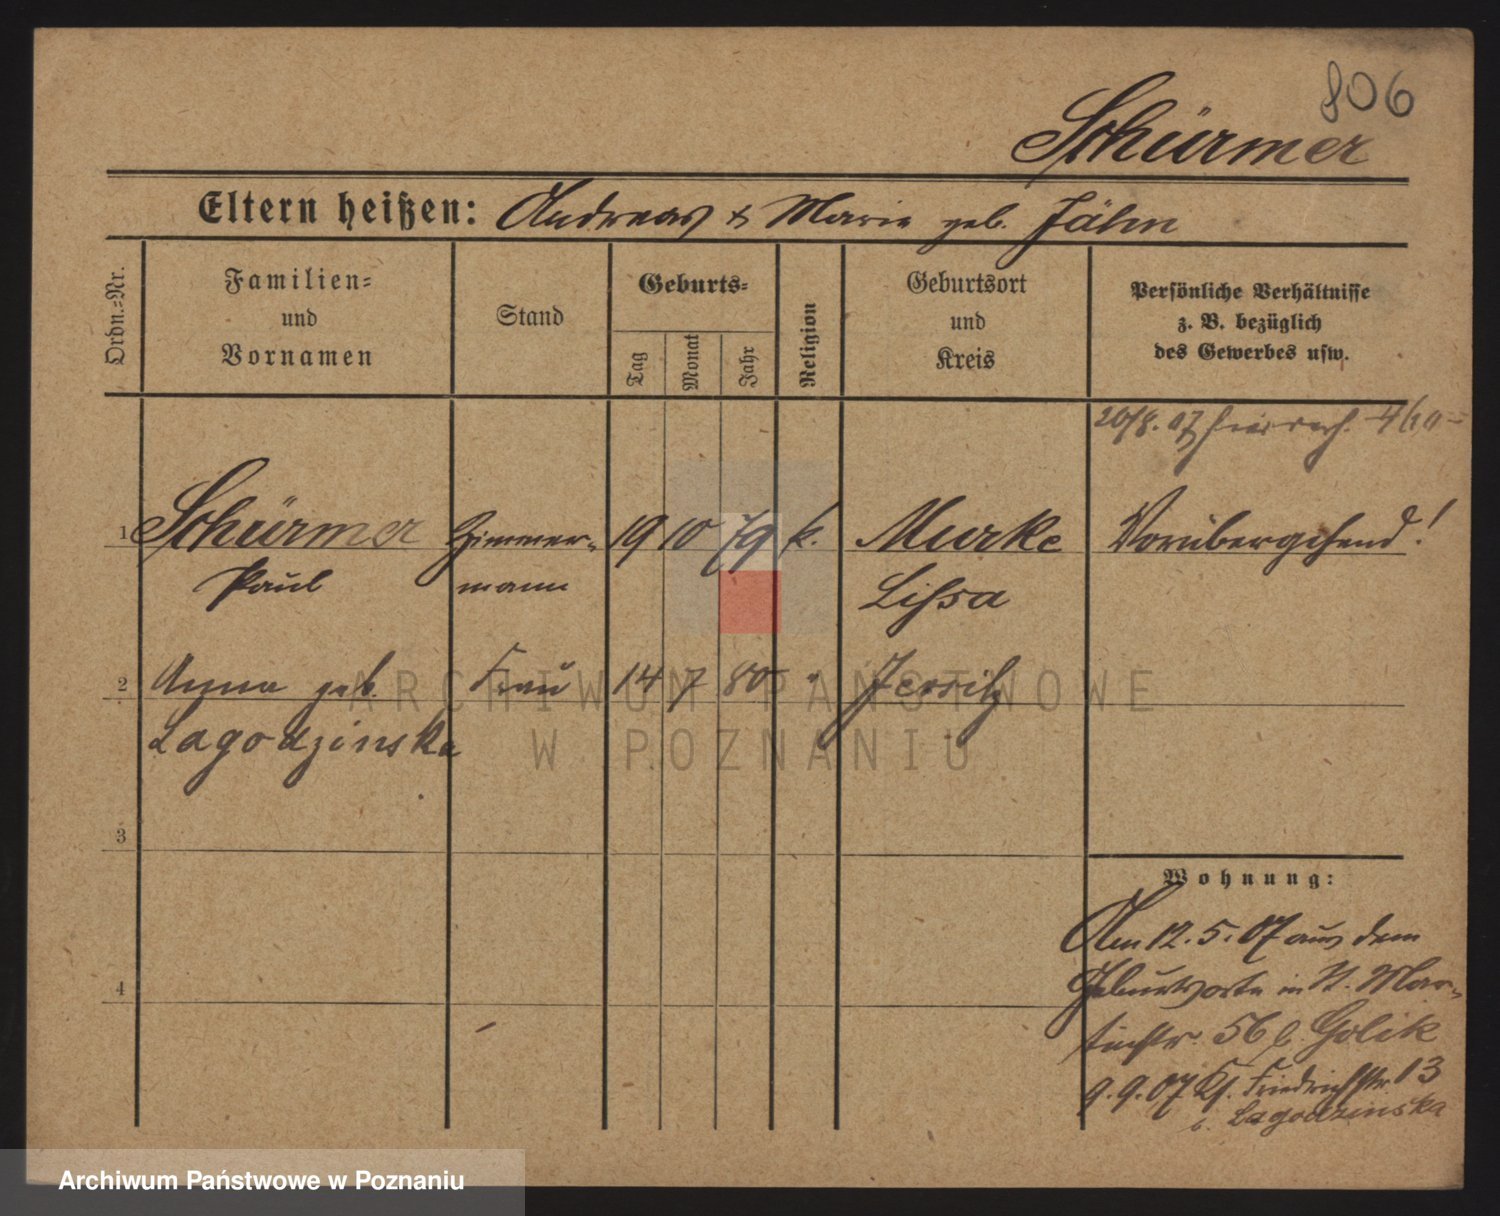 806
Schürmer
Eltern heißen: Andreas & Marie geb. Jähn
Ordn.-Nr.
Familien- und Vornamen
Stand
Geburts-
Tag
Monat
Jahr
Religion
Geburtsort und Kreis
Persönliche Verhältnisse
z. B. bezüglich
des Gewerbes usw.
20/8.07
1 Schürmer Zimmer- 19 10 79 k. Murke Vorübergehend!
Paul mann Lissa
2 Anna geb. Frau 14 7 80 " Jersitz
Lagodzinska
3
4
Wohnung:
Am 12.5.07 aus dem
Geburtsorte in St. Mar-
tinstr. 56 b. Golik
9.9.07 Kf. Friedrichstr. 13
b. Lagodzinska
ARCHIWUM PAŃSTWOWE
W POZNANIU
Archiwum Państwowe w Poznaniu